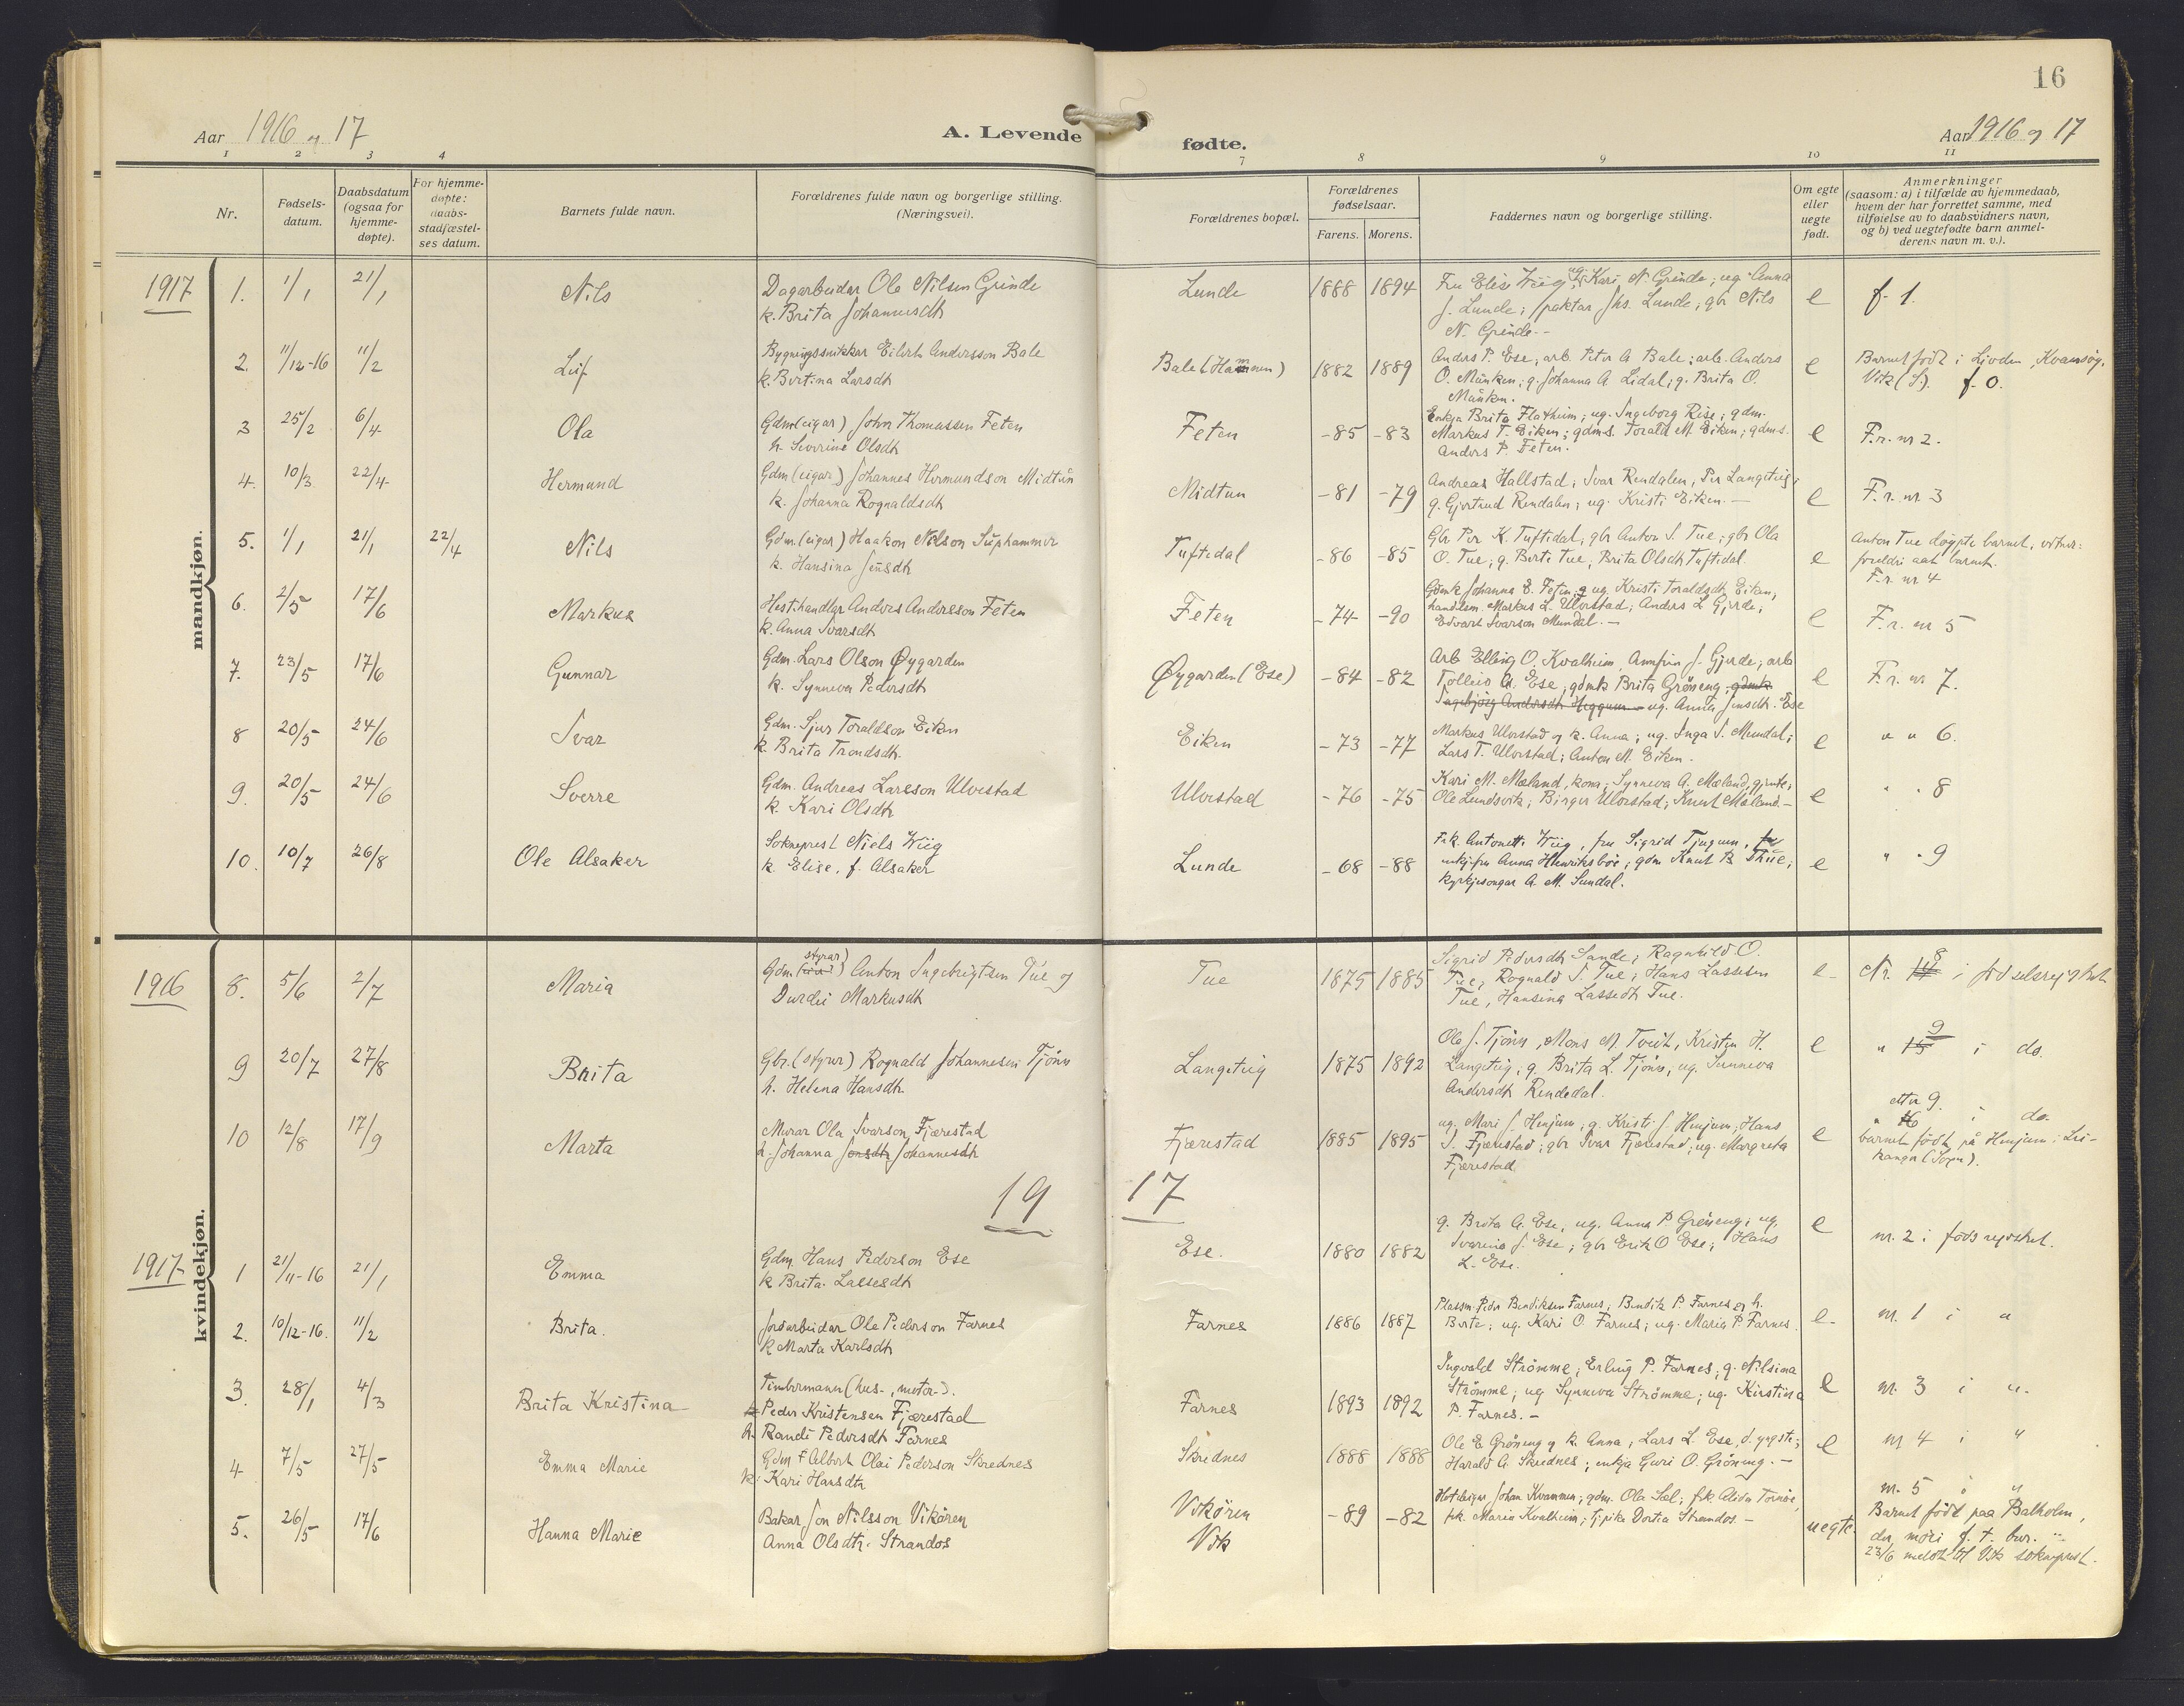 16
Aar 1916 og 17
A. Levende
fødte.
Aar 1916 og 17
1 2 3 4 7 8 9 10 11
Nr.
Fødsels-
datum.
Daabsdatum
(ogsaa for
hjemme-
døpte).
For hjemme-
døpte:
daabs-
stadfæstel-
ses datum.
Barnets fulde navn.
Forældrenes fulde navn og borgerlige stilling.
(Næringsvei).
Forældrenes bopæl.
Forældrenes
fødselsaar.
Farens. Morens.
Faddernes navn og borgerlige stilling.
Om egte
eller
uegte
født.
Anmerkninger
(saasom: a) i tilfælde av hjemmedaab,
hvem der har forrettet samme, med
tilføielse av to daabsvidners navn,
og b) ved uegtefødte barn anmel-
derens navn m. v.).
mandkjøn.
1917
1. 1/1 21/1 Nils
Dagarbeidar Ole Nilsen Grinde
k. Brita Johannesdtr
Lunde 1888 1894
Fru Elise Wiig; ug. Kari N. Grinde; ug. Anna
J. Lunde; Jhs. Lunde; gbr Nils
N. Grinde. -
e f. 1.
2. 11/12-16 11/2 Leif
Bygningssnikkar Eilerh Andersson Bale
k. Bertina Larsdtr
Bale (Hammen) 1882 1889
Anders P. Ese; arb. Peter A. Bale; arb. Anders
O. Münken; g. Johanna A. Lidal; g. Brita O.
Münken.
e Barnet født i Ljoden, Kvamsøy,
Vik (S.). f. 0.
3 25/2 6/4 Ola
Gdm (eigar) John Thomassen Feten
h. Severine Olsdtr
Feten -85 -83
Enkja Brita Flatheim; ug. Ingeborg Rise; gdm.
Markus T. Eiken; gdm.s. Torald M. Eiken; gdms.
Anders P. Feten.
e F.r. nr 2.
4. 10/3 22/4 Hermund
Gdm (eigar) Johannes Hermundson Midtun
k. Johanna Rognaldsdtr
Midtun -81 -79
Andreas Hallstad; Ivar Rendalen, Per Langeteig;
g. Gjertrud Rendalen; ug. Kristi Eiken. -
e F.r. nr. 3
5. 1/1 21/1 22/4 Nils
Gdm. (eigar) Haakon Nilson Suphammer
k. Hansina Jensdtr
Tuftedal -86 -85
Gbr. Per K. Tuftedal; gbr Anton S. Tue; gbr Ola
O. Tue; g. Berte Tue, Brita Olsdtr Tuftedal.
e Anton Tue døypte barnet, vitner:
foreldri aat barnet.
F.r. nr 4
6. 2/5 17/6 Markus
Hestehandlar Anders Andersson Feten
k. Anna Ivarsdtr
Feten -74 -90
Gdmk Johanne E. Feten; ug. Kristi Toraldsdtr Eiken,
handlsm. Markus L. Ulvestad; Anders L. Gjerde;
Edvart Ivarson Mundal. -
e F.r. nr 5
7. 23/5 17/6 Gunnar
Gdm. Lars Olson Øygarden
k. Synneva Pedersdtr
Øygarden (Ese) -84 -82
Arb Elling O. Kvalheim, Annfin J. Gjerde; arb
Tolleiv A. Ese; gdmk Brita Grøneng; gdmk
Ingebjörg Andersdtr Heggum - ug. Anna Jensdtr. Ese
e F.r. nr 7.
8 20/5 24/6 Ivar
Gdm. Sjur Toraldson Eiken
k. Brita Trondsdtr.
Eiken -73 -77
Markus Ulvestad og k. Anna; ug. Inga S. Mundal;
Lars T. Ulvestad; Anton M. Eiken.
e " " 6.
9. 20/5 24/6 Sverre
Gdm. Andreas Larsson Ulvestad
k. Kari Olsdtr
Ulvestad -76 -75
Kari M. Mæland, kona; Synneva A. Mæland, gjente;
Ole Lundsvik; Birger Ulvestad; Knut Mæland. -
e " " 8
10. 10/7 26/8 Ole Alsaker
Sokneprest Niels Wiig
k. Elise, f. Alsaker
Lunde -68 -88
Frk. Antonette Wiig, fru Sigrid Tjugum, fr
enkjefru Anna Henriksbøe; gdm Knut B. Thue;
kyrkjesongar A. M. Sundal.
e " " 9
kvindekjøn.
1916
8. 5/6 2/7 Maria
Gdm (styrar) Anton Ingebrigtsen Tue og
Durdei Markusdtr
Tue 1875 1885
Sigrid Pedersdtr Sande; Ragnhild O.
Tue; Rognald S. Tue; Hans Lassesen
Tue, Hansina Lassedtr Tue.
e Nr. 14 8 i fødselsregistret
9 20/7 27/8 Brita
Gbr. (styrar) Rognald Johannesen Tjönn
h. Helena Hansdtr.
Langeteig 1875 1892
Ole J. Tjönn, Mons M. Tveit, Kristen H.
Langeteig, g. Brita L. Tjönn, ug. Sunneva
Andersdtr Rendedal.
e " 15 9 i do.
10 12/8 17/9 Marta
Murar Ola Ivarson Fjærestad
h. Johanna Jensdtr Johannesdtr
Fjærestad 1885 1895
ug. Mari J. Henjum; g. Kristi J. Henjum; Hans
I. Fjærestad; gbr Ivar Fjærestad; ug. Margreta
Fjærestad
e etter 9.
" 16 i do.
barnet født på Henjum i Lei-
kanger (Sogn).
19 17
1917
1 21/11-16 21/1 Emma
Gdm Hans Pederson Ese
k Brita Lassesdtr
Ese. 1880 1882
g. Brita A. Ese, ug. Anna P. Grøneng; ug.
Severine J. Ese; gbr Erik O Ese; Hans
L. Ese.
e nr. 2 i føds regisket.
2. 10/12-16. 11/2 Brita.
Jordarbeidar Ole Pederson Farnes
k Marta Karlsdtr
Farnes 1886 1887
Plassm. Peder Bendiksen Farnes; Bendik P. Farnes og h.
Berte; ug. Kari O. Farnes; ug. Maria P. Farnes.
e nr. 1 i "
3. 28/1 4/3 Brita Kristina
Timbermann (hus-, motor-).
Peder Kristensen Fjærestad
h. Randi Pedersdtr Farnes
Farnes 1893 1892
Ingvald Strömme; Erling P. Farnes; g. Nilsina
Strömme; ug Synneva Strömme; ug. Kirstina
P. Farnes. -
e nr. 3 i "
4. 7/5 27/5 Emma Marie
Gdm Albert Olai Pederson Skrednes
k. Kari Hansdtr
Skrednes 1888 1888
Ole E. Gröneng og k. Anna; Lars L. Ese, d. yngste;
Harald A. Skrednes; enkja Guri O. Gröneng. -
e nr 4 i "
5. 26/5 17/6 Hanna Marie
Bakar Jon Nilsson Vikören
Anna Olsdtr. Strandos
Vikören
Vik
-89 -82
Hoteleigar Johan Kvammen; gdm. Ola Sæl; frk. Alida Tornøe,
frk. Maria Kvalheim; Dortea Strandos. -
uegte. nr. 5 i "
Barnet født paa Balholm,
der mori f. t. bur. -
23/6 meldt til Vik sokneprest.